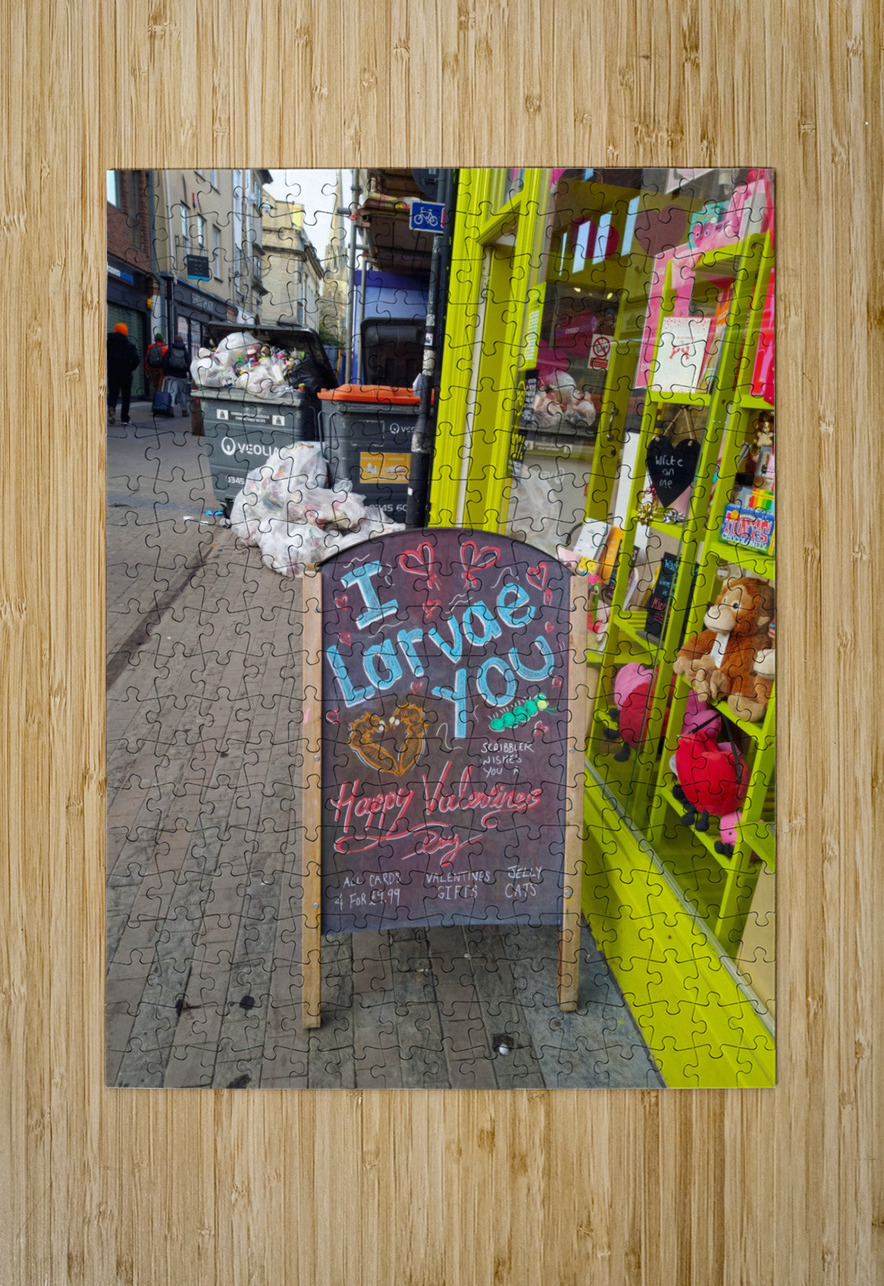 VEOLIA
VEO
Write
on
me
I
Larvae
YOU
SCRIBBLER
WISHE'S
YOU A
Happy Valentines
Day
ALL CARDS
4 FOR £9.99
VALENTINES
GIFTS
JELLY
CATS